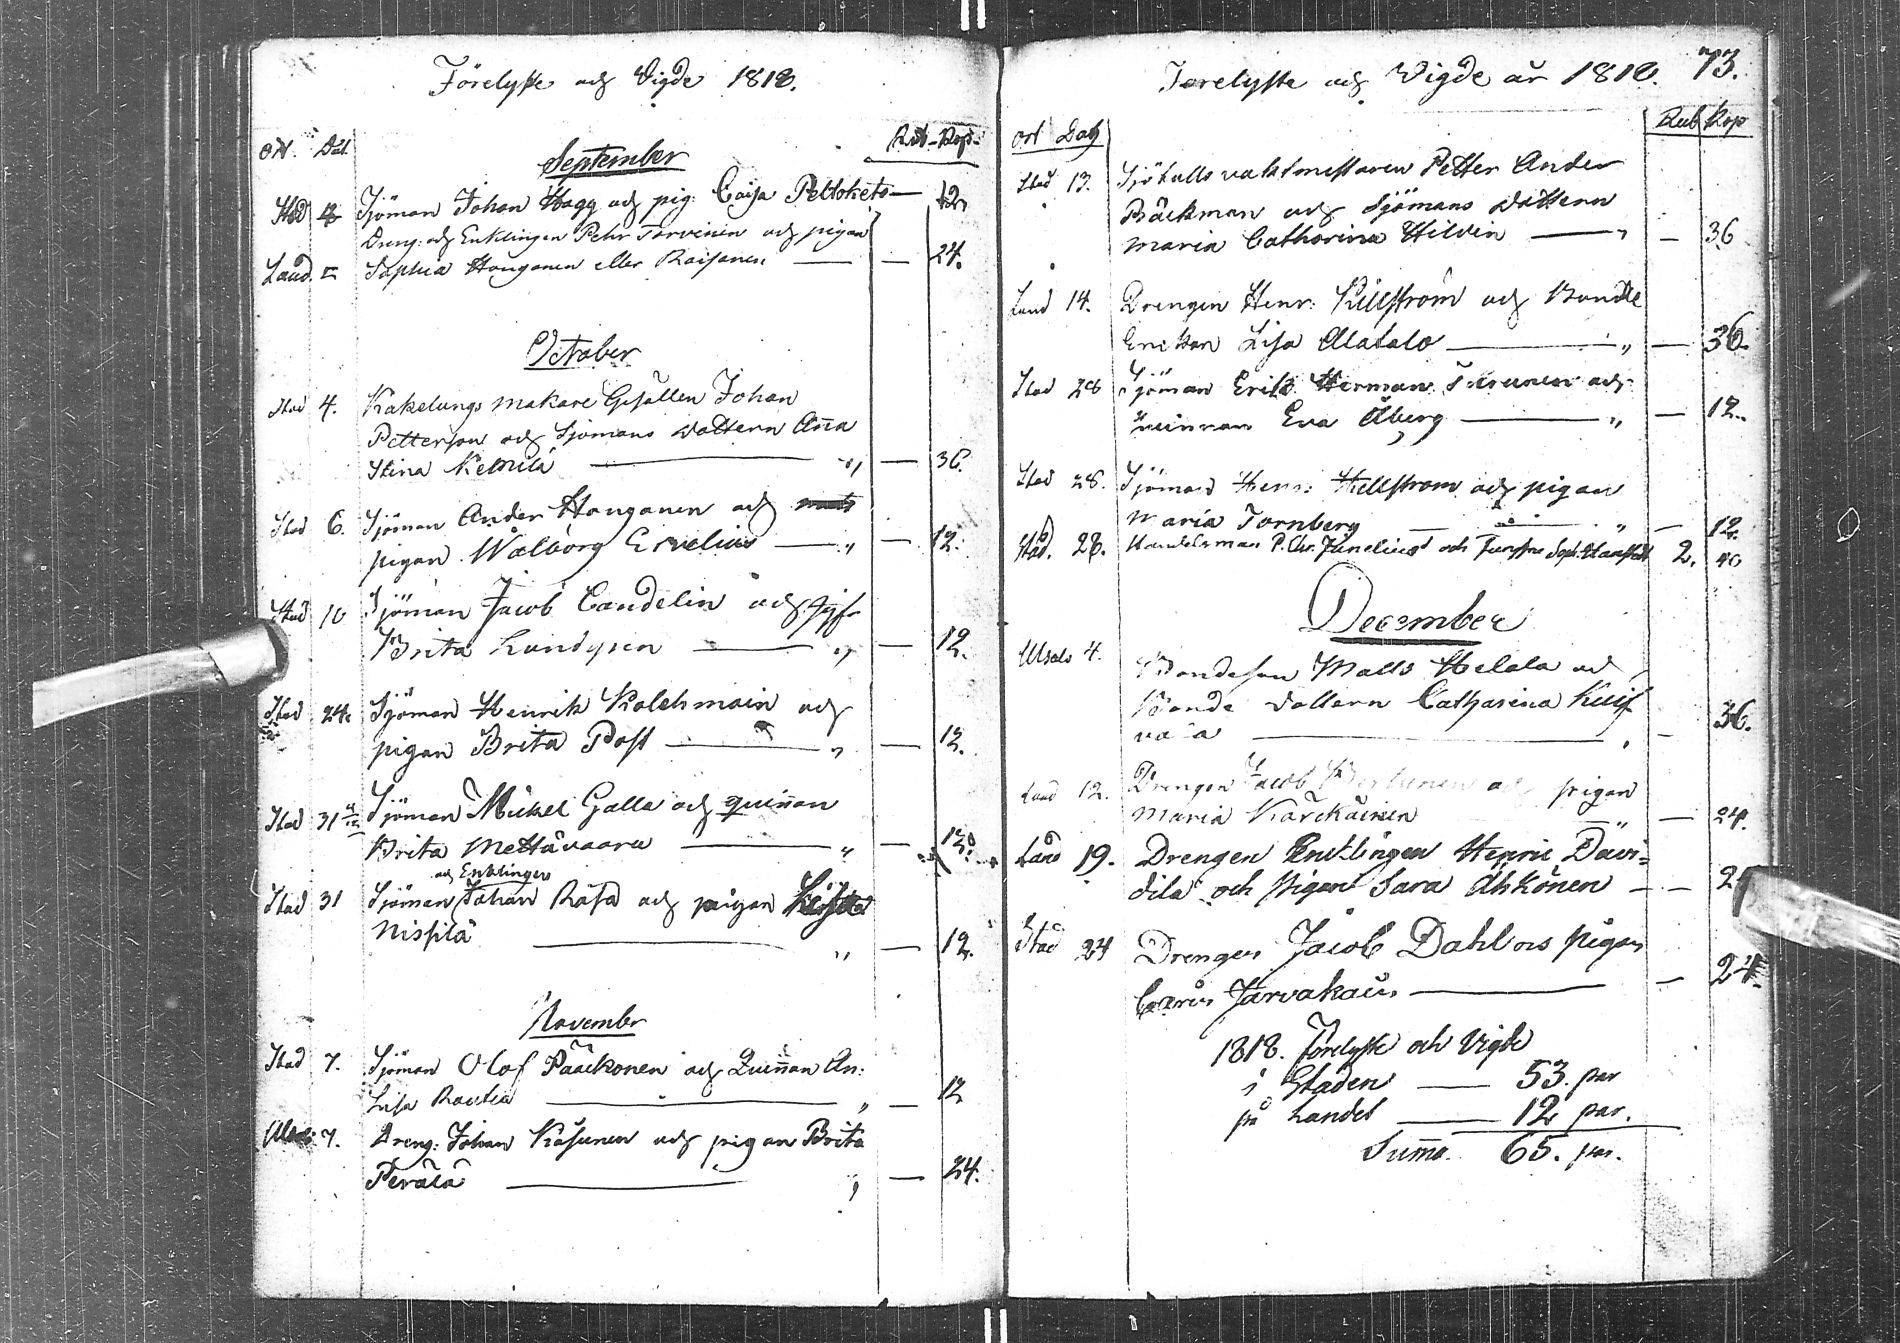 Förelyste och Vigde 1818.
Ort. Dat.
Rub. Kop.
September
Stad Sjöman Johan Hagg och pig: Caisa — 12
Dreng: och Enklingen Pehr Torvinen och pigan
Land. Sophia Hougonen eller Raisanen — — 24.
October
Stad 4. Kakelungs makare Gesällen Johan
Petterson och Sjömans dottern Ana
Stina Kemilä — „ — 36.
Stad 6. Sjöman Ander Honganen och
pigan Walborg Ervelius — „ — 12.
Stad 10 Sjöman Jacob Candelin och
Brita Lundgren — „ — 12.
Stad 24. Sjöman Henrik Kolehmain och
pigan Brita Post — „ — 12.
Stad 31 Sjöman Mickel Galla och quinnan
Brita Mettävaara — „ — 12.
och Enklingen
Stad 31 Sjöman Johan Räfsa och pigan
Nissilä — „ — 12.
November
Stad 7. Sjöman Olof Pääckonen och Quinnan An:
Lisa Rautia — „ — 12
7. Dreng: Johan Käsunen och pigan Brita
Perälä — „ — 24.
Förelyste och Vigde år 1818. 73.
Ort Dag
Rub Kop
Stad 13. Sjötullsvaktmestaren Petter Ander
Bäckman och Sjömans dottern
Maria Catharina Hilden — „ — 36
Land 14. Drengen Henr: Killström och Bonde
Enckan Lisa Alatalo — „ — 36.
Stad 28 Sjöman Erik Herman och
Quinnan Eva Åberg — „ — 12.
Stad 28. Sjöman Henr: Hellstrom och pigan
Maria Tornberg — „ — 12.
Stad. 28. Handelsman P. Chr. Junelius och 2. 40
December
4. Bondeson Matts Helala och
Bonde dottern Catharina
— „ — 36.
Land 12. Drengen Jacob och pigan
Maria Karckäinen — „ — 24.
Land 19. Drengen Enklingen Henric Davi=
dila och pigan Sara Ahkönen — — 24
Stad 24 Drengen Jacob Dahl o pigan
Carin Jarvakais — — 24.
1818. Förelyste och Vigde
i Staden — 53. par
på Landet — 12 par.
Suma. 65. par.